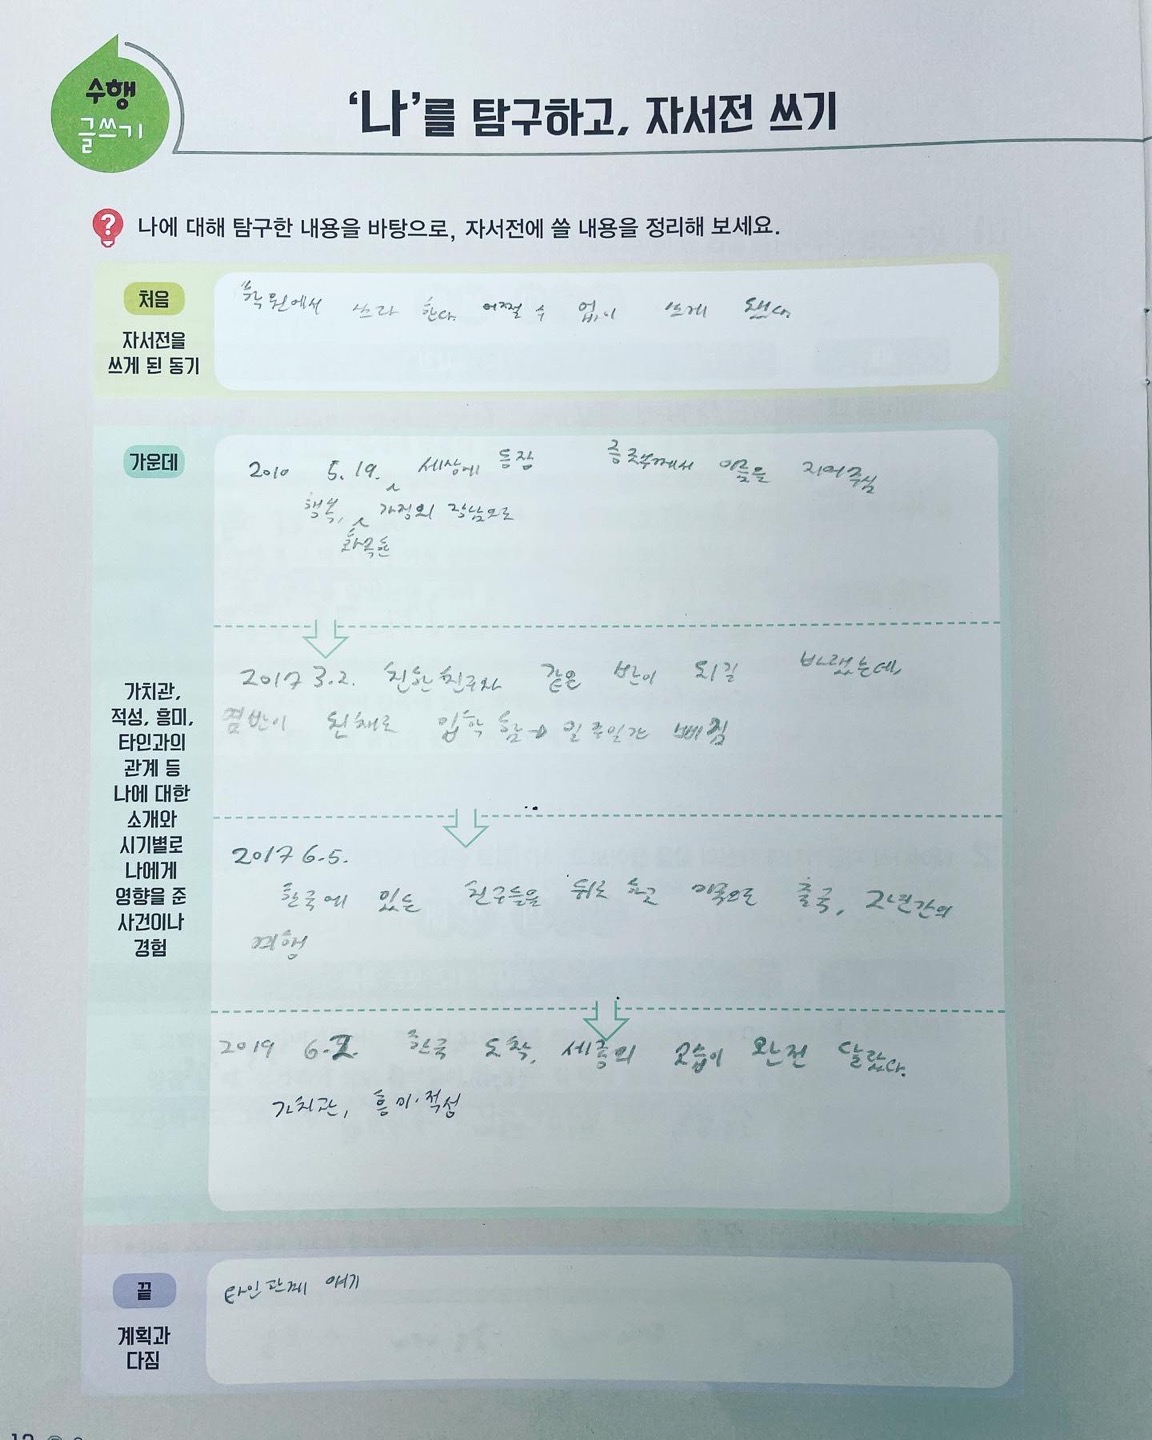 수행
글쓰기
‘나’를 탐구하고, 자서전 쓰기
나에 대해 탐구한 내용을 바탕으로, 자서전에 쓸 내용을 정리해 보세요.
처음
자서전을
쓰게 된 동기
학원에서 쓰라 한다. 어쩔 수 없이 쓰게 됐다.
가운데
가치관,
적성, 흥미,
타인과의
관계 등
나에 대한
소개와
시기별로
나에게
영향을 준
사건이나
경험
2010 5. 19. 세상에 등장 증조부께서 이름을 지어주심
행복, 가정의 장남으로
화목한
2017 3.2. 친한친구와 같은 반이 되길 바랬는데,
옆반이 된채로 입학 함→ 일주일간 삐짐
2017 6.5.
한국에 있는 친구들을 뒤로 하고 미국으로 출국, 2년간의
여행
2019 6.2. 한국 도착, 세종의 모습이 완전 달랐다.
가치관, 흥미·적성
끝
계획과
다짐
타인관계 얘기